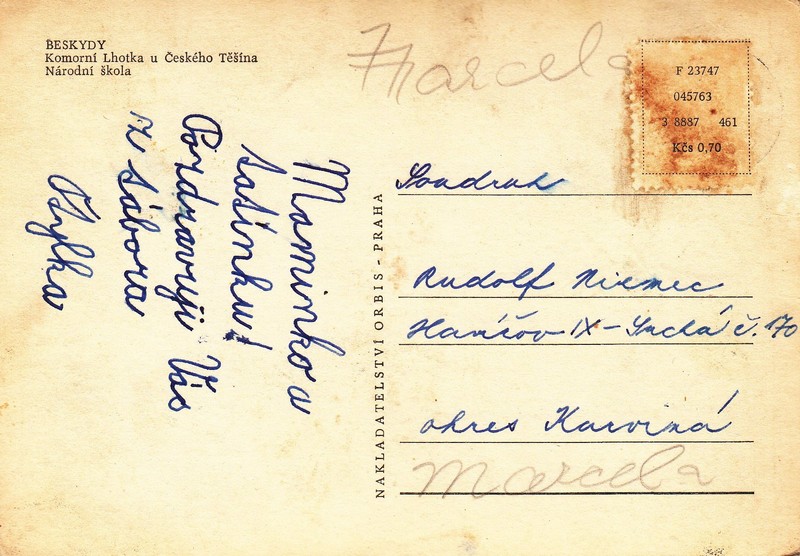 BESKYDY
Komorní Lhotka u Českého Těšína
Národní škola
Marcela
F 23747
045763
3 8887 461
Kčs 0,70
Maminko a
tatínku!
Pozdravuji Vás
z tábora
Sylka
NAKLADATELSTVÍ ORBIS - PRAHA
Soudruh
Rudolf Niemec
Havířov IX - Suchá č. 170
okres Karviná
Marcela